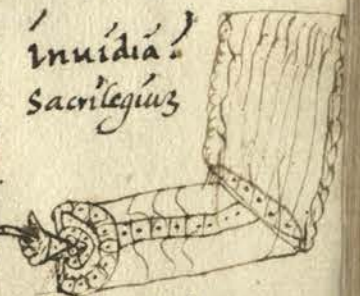 inuidia!
Sacrilegiuʒ